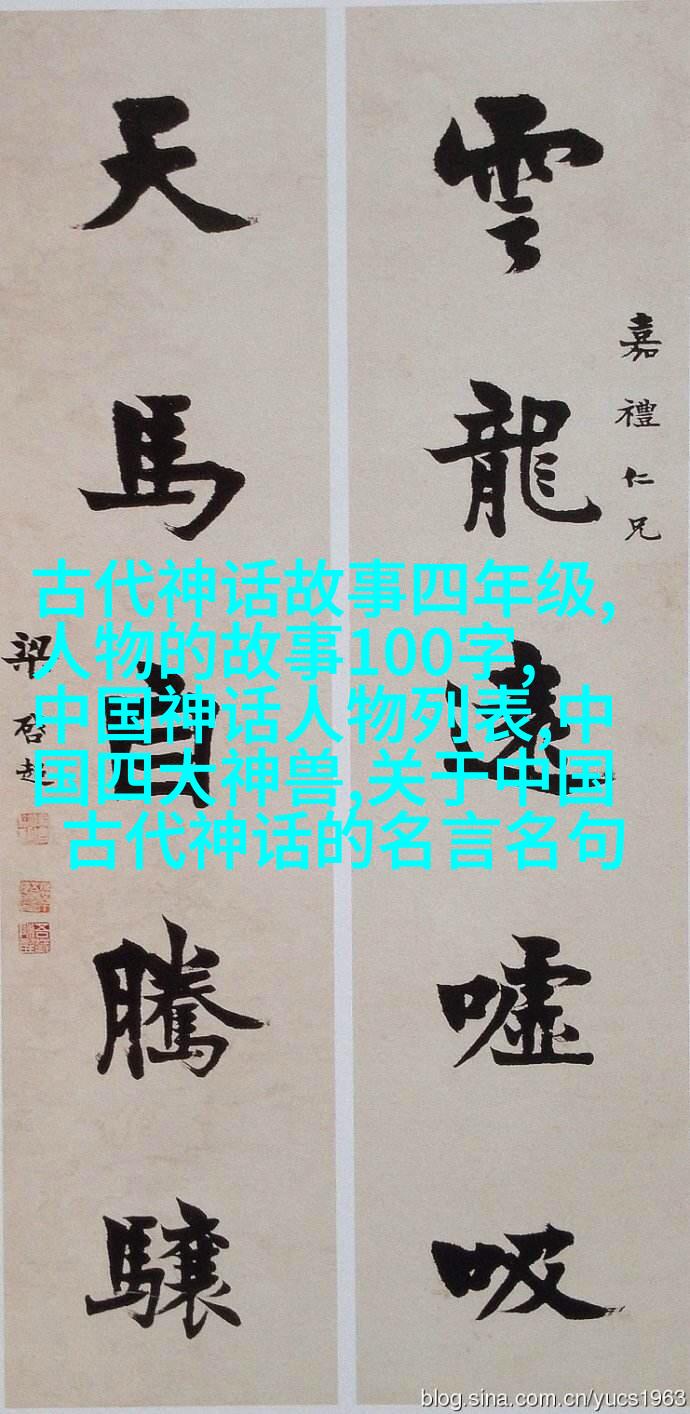 雲龍遠噓吸
嘉禮仁兄
天馬自騰驤
梁启超
古代神话故事四年级,
人物的故事100字,
中国神话人物列表,中
国四大神兽,关于中国
古代神话的名言名句
blog.sina.com.cn/yucs1963